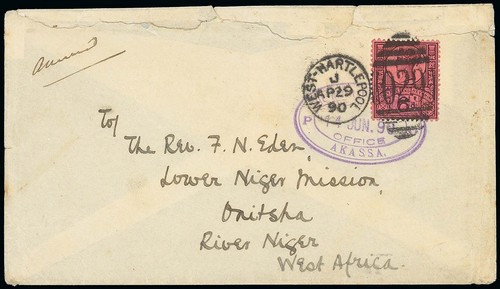 WEST-HARTLEPOOL
J
AP29
90
P
4 JUN. 9
OFFICE
AKASSA.
To/
The Rev. F. N. Eden,
Lower Niger Mission,
Onitsha
River Niger
West Africa.